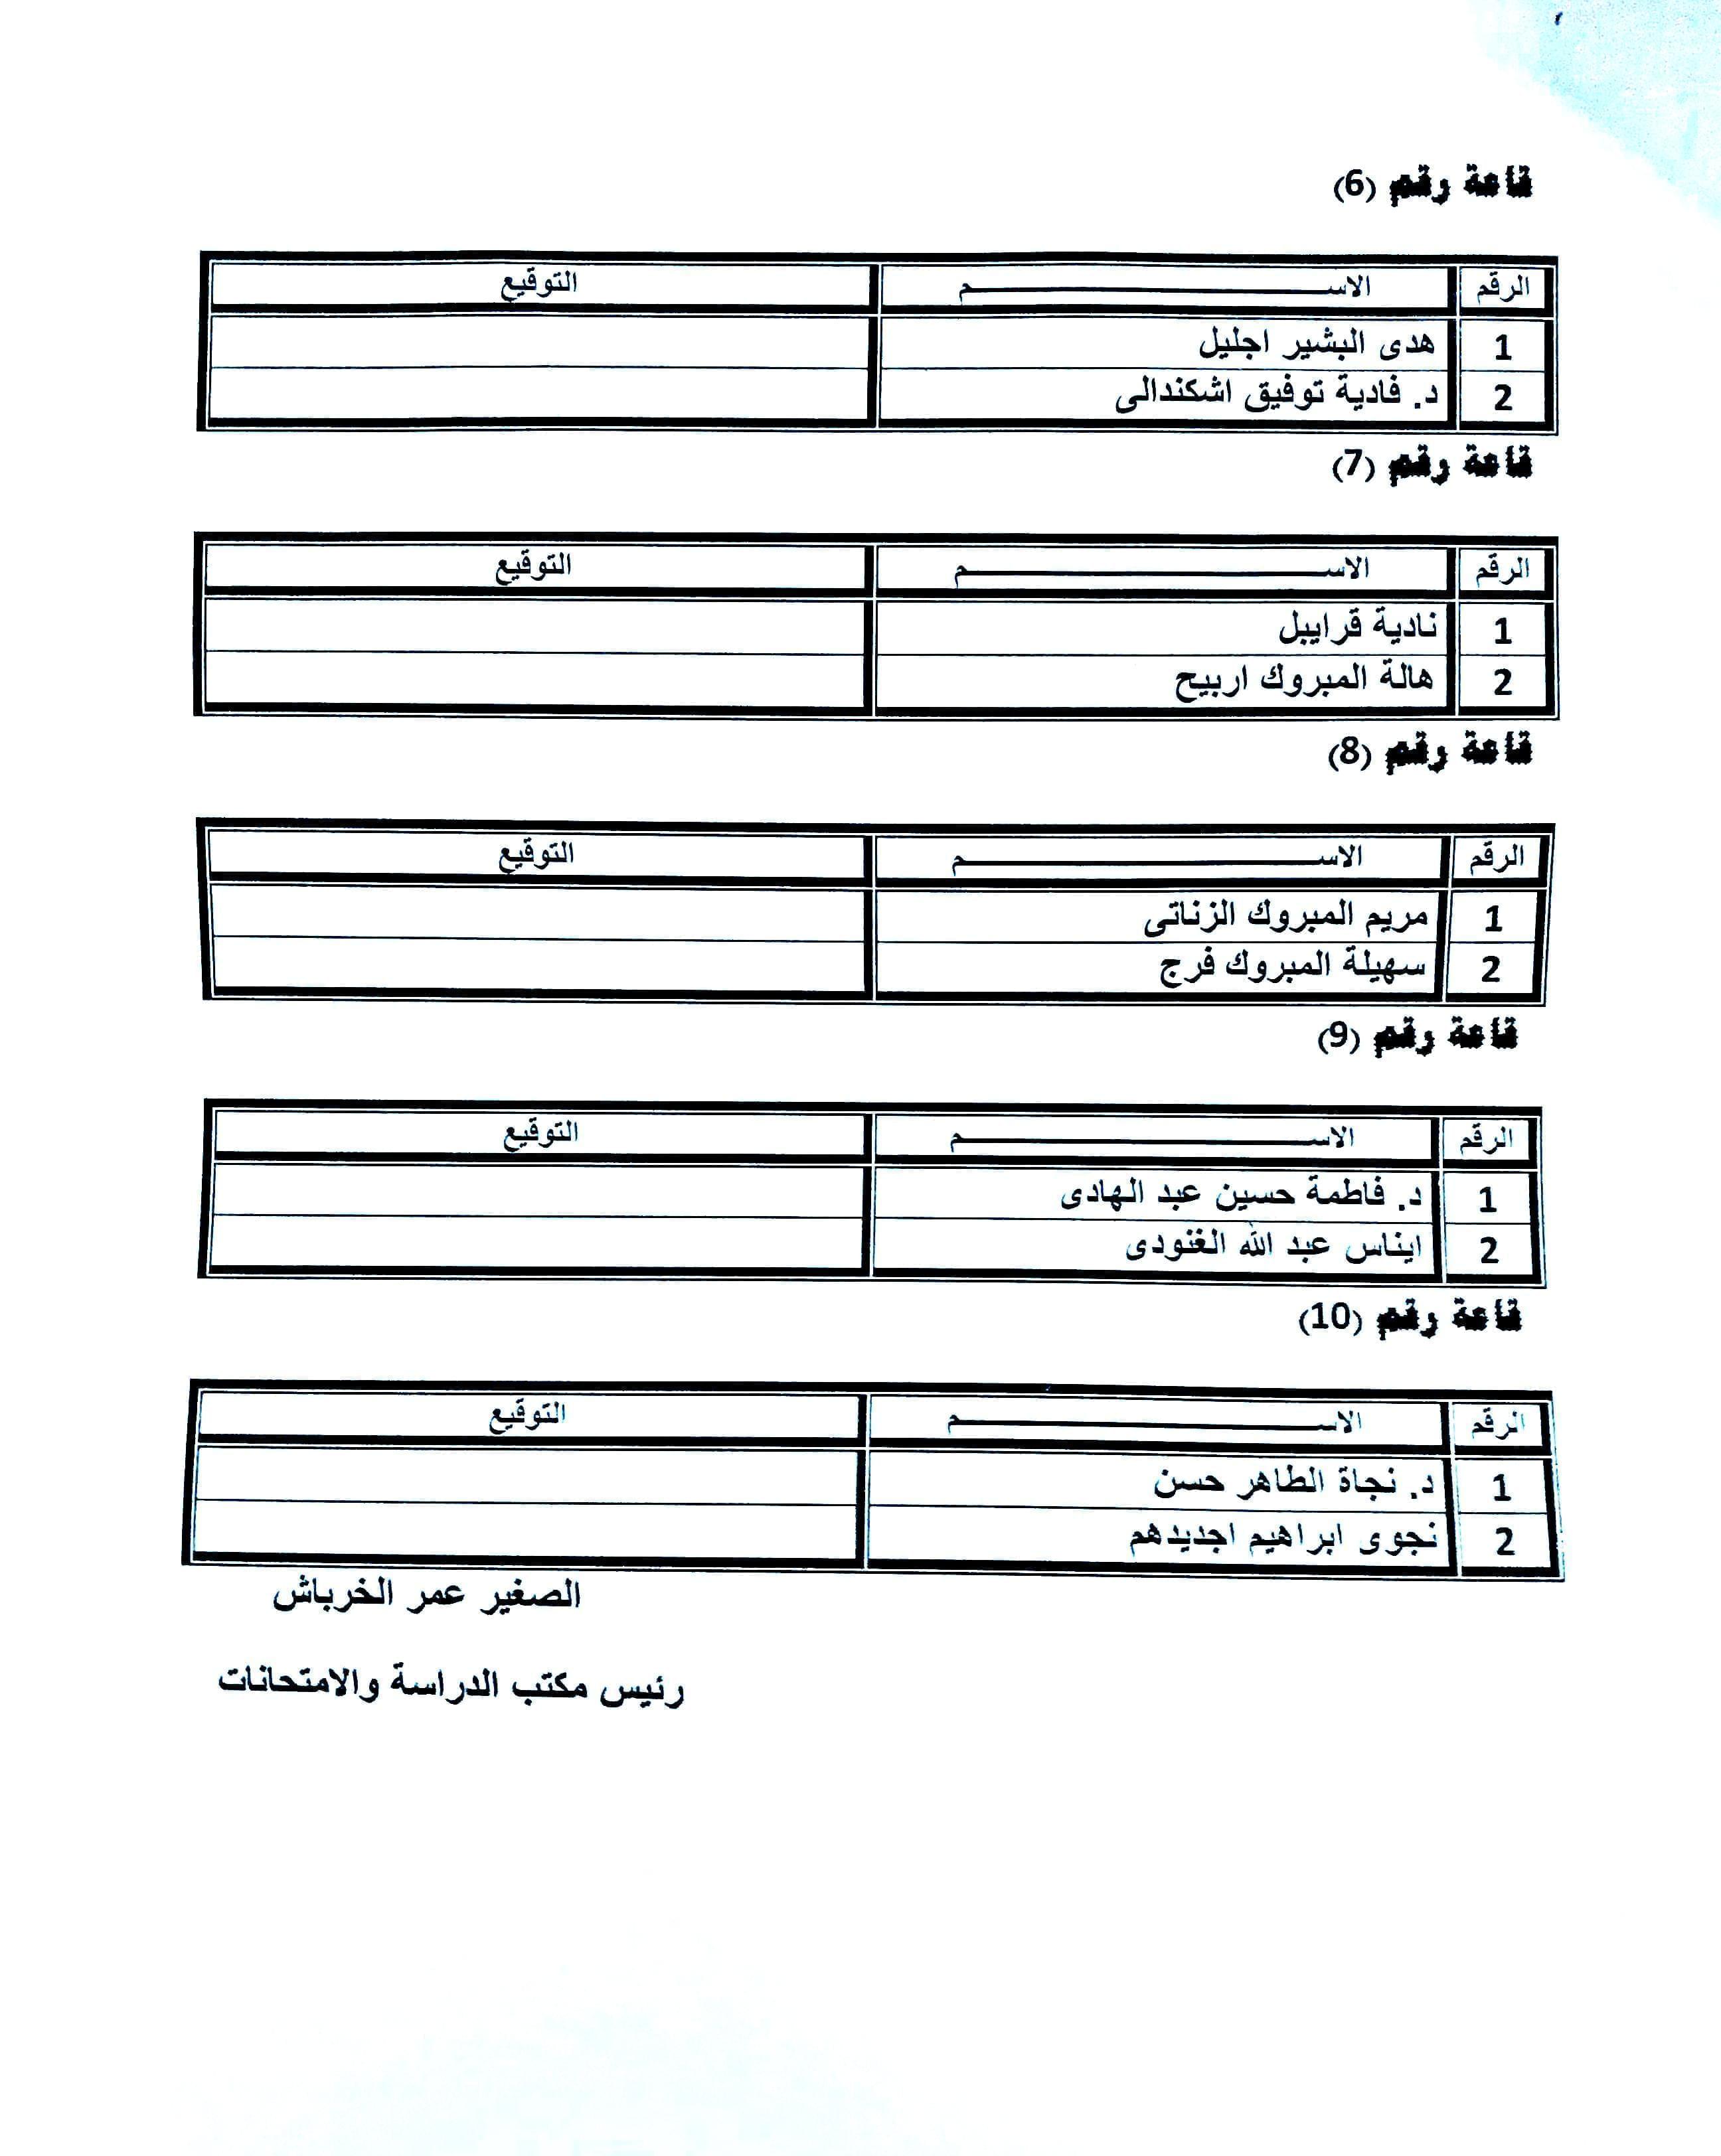 قاعة رقم (6)
الرقم الاســـــــــــــــــــــم التوقيع
1 هدى البشير اجليل
2 د. فادية توفيق اشكندالى
قاعة رقم (7)
الرقم الاســـــــــــــــــــــم التوقيع
1 نادية قرايبل
2 هالة المبروك اربيح
قاعة رقم (8)
الرقم الاســـــــــــــــــــــم التوقيع
1 مريم المبروك الزناتى
2 سهيلة المبروك فرج
قاعة رقم (9)
الرقم الاســـــــــــــــــــــم التوقيع
1 د. فاطمة حسين عبد الهادى
2 ايناس عبد الله الغنودى
قاعة رقم (10)
الرقم الاســـــــــــــــــــــم التوقيع
1 د. نجاة الطاهر حسن
2 نجوى ابراهيم اجديدهم
الصغير عمر الخرباش
رئيس مكتب الدراسة والامتحانات